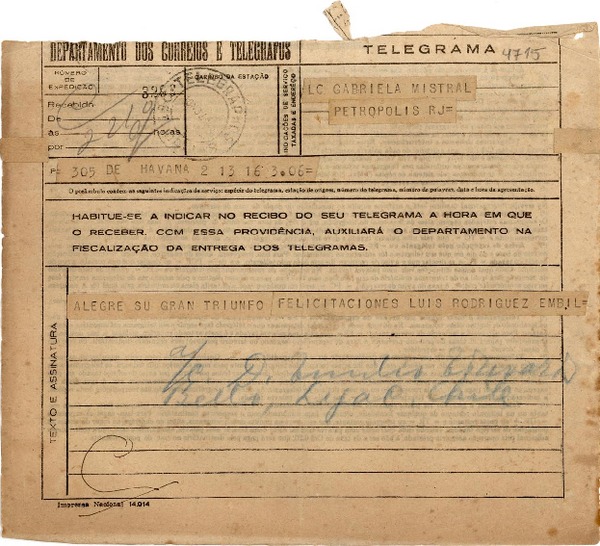 DEPARTAMENTO DOS CORREIOS E TELEGRAFOS
TELEGRAMA
4715
NÚMERO
DE
EXPEDIÇÃO
CARIMBO DA ESTAÇÃO
Recebido
De
às horas
por
INDICAÇÕES DE SERVIÇO
TAXADAS E ENDERÊÇO
LC GABRIELA MISTRAL
PETROPOLIS RJ=
305 DE HAVANA 2 13 16 3.06=
O preâmbulo contém as seguintes indicações de serviço: espécie do telegrama, estação de origem, número do telegrama, número de palavras, data e hora da apresentação.
HABITUE-SE A INDICAR NO RECIBO DO SEU TELEGRAMA A HORA EM QUE
O RECEBER. COM ESSA PROVIDÊNCIA, AUXILIARÁ O DEPARTAMENTO NA
FISCALIZAÇÃO DA ENTREGA DOS TELEGRAMAS.
TEXTO E ASSINATURA
ALEGRE SU GRAN TRIUNFO FELICITACIONES LUIS RODRIGUEZ EMBIL=
D. Emilio
Bello, C. Chile
Imprensa Nacional 14.014